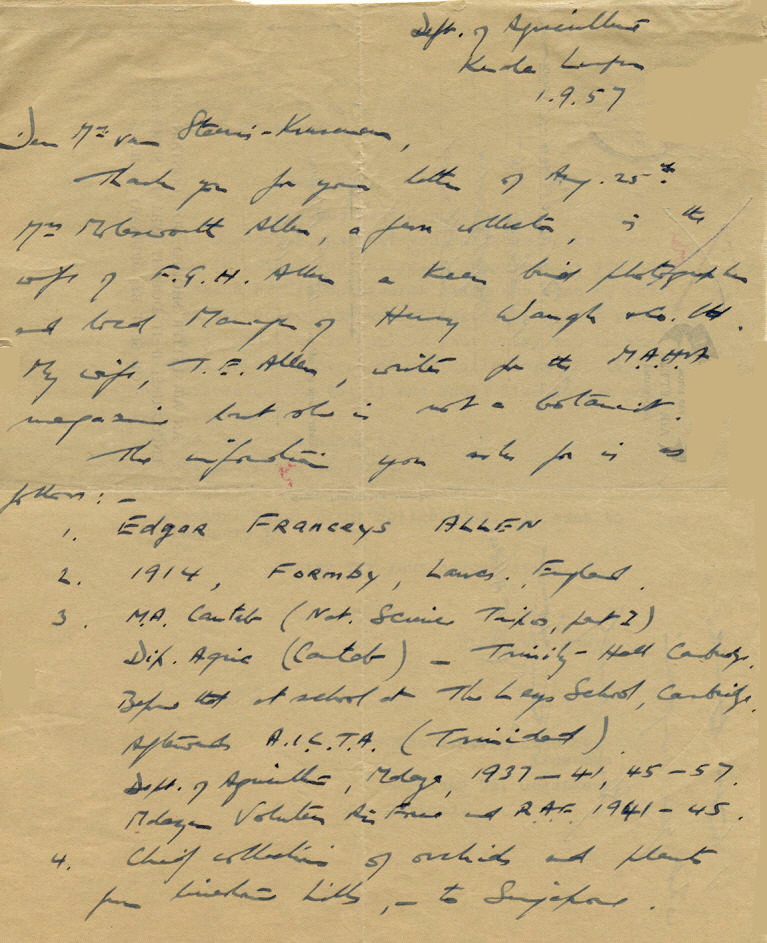 Dept. of Agriculture
Kuala Lumpur
1.9.57
Dear Mrs van Steenis-Kruseman,
Thank you for your letter of Aug. 25th.
Mrs Molesworth Allen, a fern collector, is the
wife of F.G.H. Allen a keen bird photographer
and local Manager of Henry Waugh & Co. Ltd.
My wife, T.E. Allen, writes for the M.A.H.A
magazine but she is not a botanist.
The information you ask for is as
follows: -
1. Edgar Franceys ALLEN
2. 1914, Formby, Lancs. England.
3. M.A. Cantab (Nat. Science Tripos, part I)
Dip. Agric (Cantab) - Trinity-Hall Cambridge.
Before that at school at The Leys School, Cambridge.
Afterwards A.I.C.T.A. (Trinidad).
Dept. of Agriculture, Malaya, 1937-41, 45-57.
Malayan Volunteer Air Force and R.A.F. 1941-45.
4. Chief collections of orchids and plants
from limestone hills, - to Singapore.